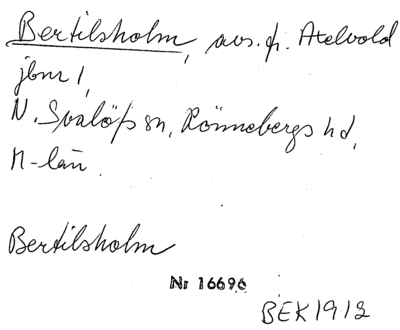 Bertilsholm, avs. fr. Atelvold
jbnr 1,
N. Svalöfs sn, Rönnebergs hd,
M-län.
Bertilsholm
Nr 16696
BEK 1912